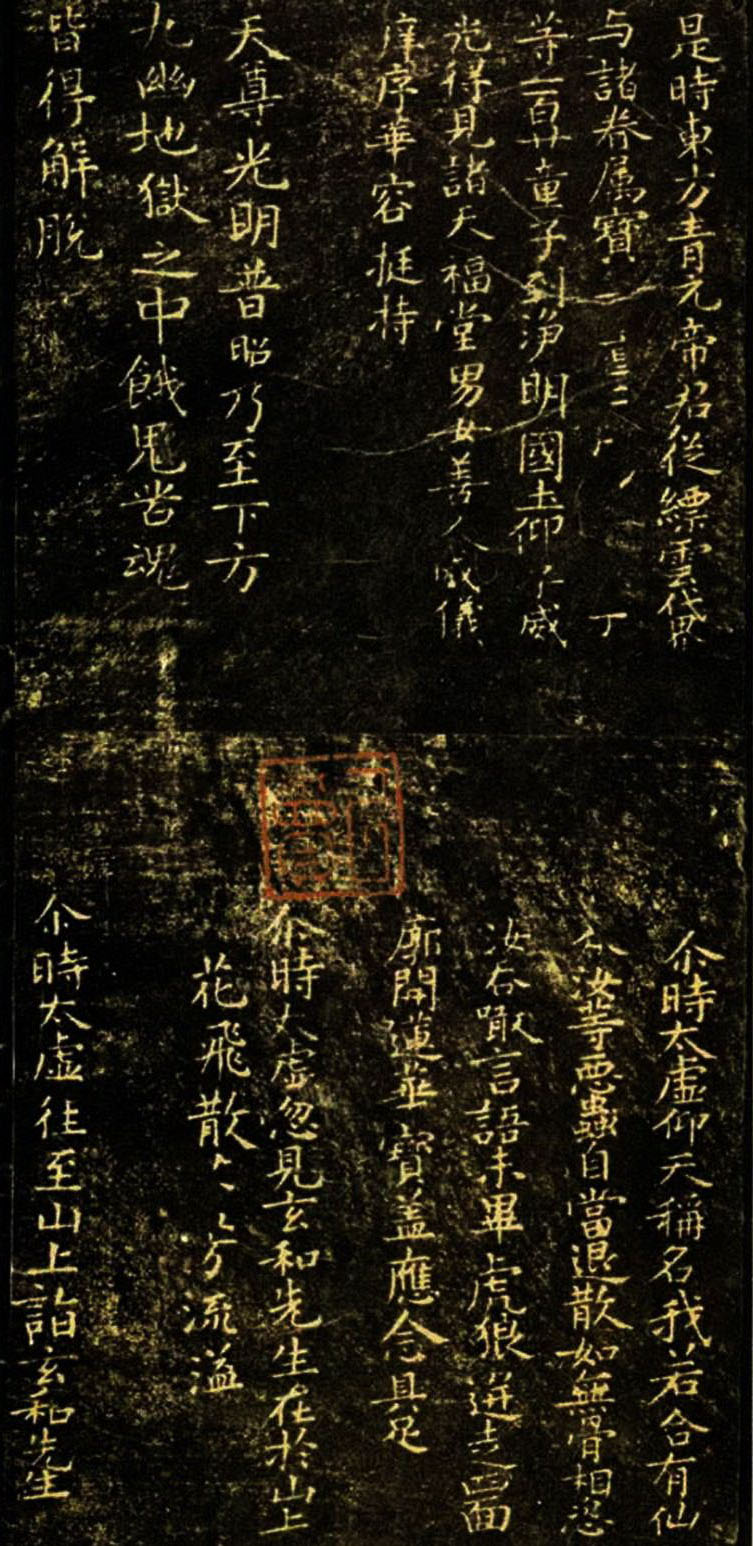 是時東方青元帝君從縹雲
与諸眷属寶
等一百廿童子到淨明國土仰威
光得見諸天福堂男女善人威儀
庠序華容挺特
天尊光明普照乃至下方
九幽地獄之中餓鬼苦魂
皆得解脫
尒時太虛仰天稱名我若合有仙
分汝等惡蟲自當退散如無骨相恣
汝吞噉言語未畢虎狼迸走四面
廓開蓮華寶盖應念具足
尒時太虛忽見玄和先生在於山上
花飛散方流溢
尒時太虛往至山上詣玄和先生